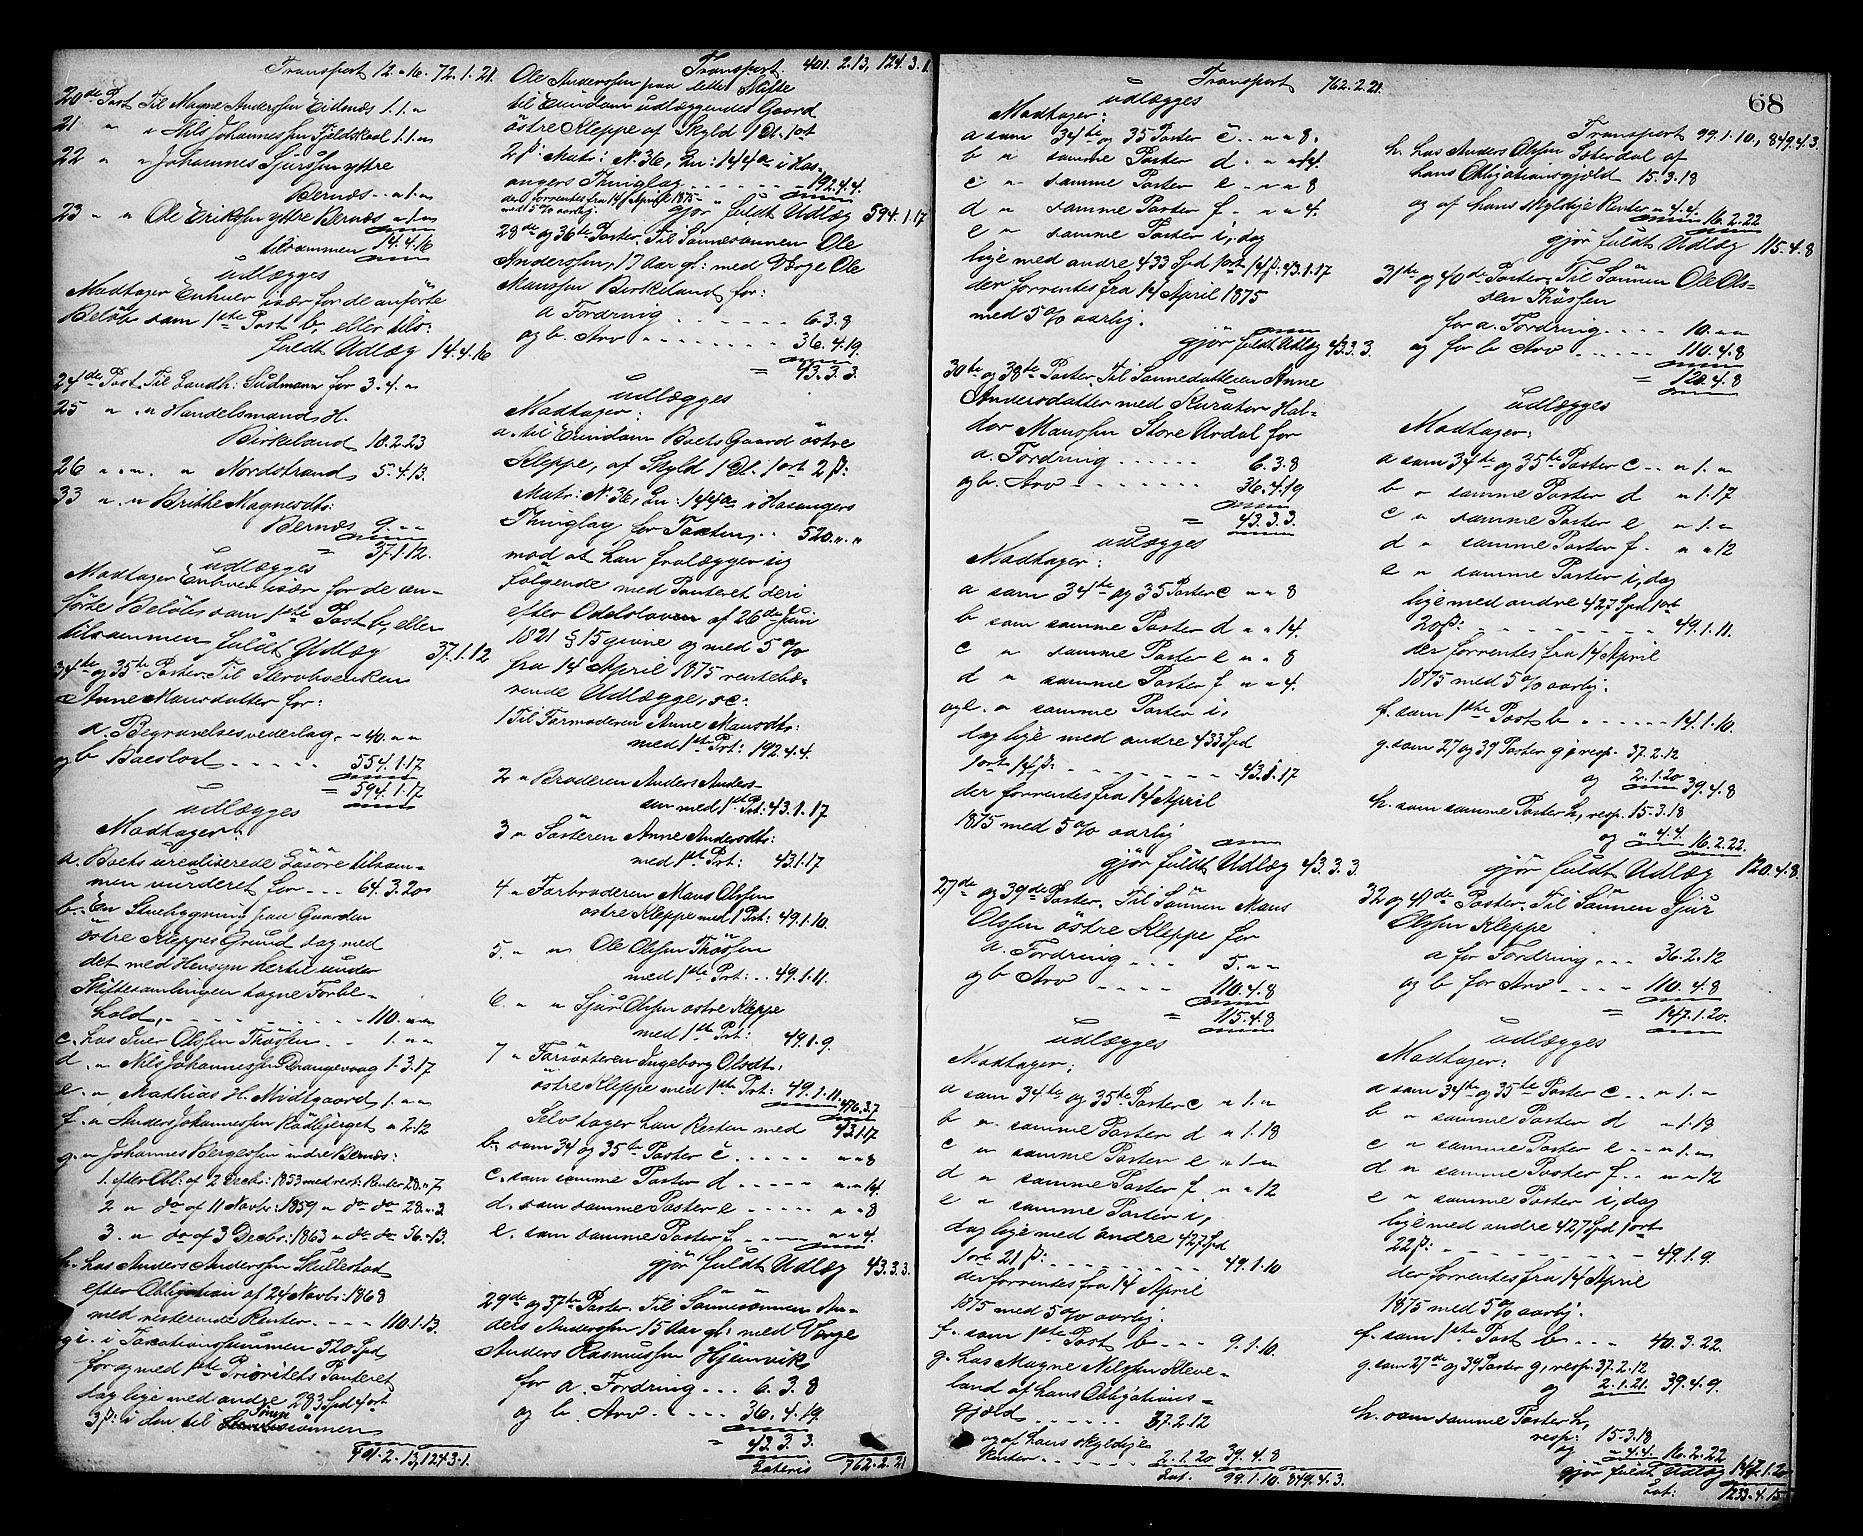 Transport 12.„16. 72.1.21.
20de Post Til Magne Anderssen Eidsnæs 1.1.„
21 „ „ Nils Johannessen Fjeldskaal 1.1.„
22 „ „ Johannes Sjurssen ytre
Bernæs - „ 1.„
23 „ „ Ole Erikssen ytre Bernæs „ 1.„
tilsammen 14.4.16
udlægges
Modtager Enhver især for de anførte
Beløb som 1ste Post b, eller tils:
fuldt Udlæg 14.4.16
24de Post Til Landh: Sudmann for 3.4.„
25 „ „ Handelsmand H.
Birkeland 18.2.23
26 „ „ „ Nordstrand 5.4.13.
33 „ „ Brithe Magnesdtr:
Bernæs 9.„„
= 37.1.12.
udlægges
Modtager Enhver især for de an-
førte Beløb som 1ste Post b, eller
tilsammen fuldt Udlæg 37.1.12
34te og 35te Poster. Til Stervboenken
Anne Mansdatter for:
a. Begravelsesvederlag. - 40.„„
og b Boeslod - - - - 554.1.17
= 594.1.17
udlægges
Modtager:
a. Boets urealiserede Løsøre tilsam-
men vurderet for - - 64.3.20
b. En Stuebygning paa Gaarden
östre Kleppes Grund dog med
det med Hensyn hertil under
Skiftesamlingen tagne Forbe-
hold, - - - - - - 110.„„
c. hos Iver Olssen Thøssen - - 1.„„
d. „ Nils Johannessen Drangevaag 1.3.17
e. „ Mathias H. Midtgaard 1.„„
f. „ Anders Johannessen Rødbjerget „ 2.12
g. „ Johannes Bergessen indre Bernæs:
1. efter Obl: af 2 Decbr: 1853 med rest: Renter 28.„7
2 „ do af 11 Novbr: 1859 „ do do 28.„2
3. „ do af 3 Decbr: 1863 „ do do 56.„13.
h. hos Anders Anderssen Skillestad
efter Obligation af 24 Novbr: 1868
med resterende Renter - - - 110.1.13.
og i. i Taxationssummen 520 Spd
for og med 1ste Prioritets Panteret
dog lige med andre 283 Spd 4 ort
3 ß: i den til Sønnesønnen
401.2.13, 124.3.1.
Transport 401.2.13, 124.3.1.
Ole Anderssen paa dette Skifte
til Eiendom udlæggendes Gaard
östre Kleppe af Skyld 1 Dl. 1 ort
2 ß: Matr: N. 36, Ln: 144a i Hos-
angers Thinglag - - - - - 192.4.4.
der forrentes fra 14 April 1875
med 5 % aarlig. gjør fuldt Udlæg 594.1.17
28de og 36te Poster. Til Sønnesønnen Ole
Anderssen, 17 Aar gl: med Verge Ole
Monssen Birkeland for:
a Fordring - - - - - - 6.3.8
og b. Arv - - - - - - 36.4.19.
= 43.3.3.
udlægges
Modtager:
a. til Eiendom Boets Gaard östre
Kleppe, af Skyld 1 Dl. 1 ort 2 ß:
Matr: N. 36, Ln: 144a i Hosangers
Thinglag for Taxten - - 520.„.„
mod at han fralægger sig
følgende med Panteret deri
efter Odelsloven af 26de Juni
1821 § 15 givne og med 5 %
fra 14 April 1875 rentebæ-
rende Udlægge, sc:
1 Til Farmoderen Anne Mansdtr:
med 1ste Prt: 192.4.4.
2 „ Broderen Anders Anders-
sen med 1ste Prt: 43.1.17
3 „ Søsteren Anne Andersdtr:
med 1ste Prt: 43.1.17
4 „ Farbroderen Mons Olssen
östre Kleppe med 1 Prt: 49.1.10.
5. „ „ Ole Olssen Thøssen
med 1ste Prt: - 49.1.11.
6 „ „ Sjur Olssen östre Kleppe
med 1ste Prt: 49.1.9.
7 „ Farsøsteren Ingeborg Olsdtr:
östre Kleppe med 1ste Prt: 49.1.11. 476.3.7
Selv tager han Resten med 43.1.17
b. som 34 og 35te Poster c - - - - „ „ 8
c. som samme Poster d - - - - „ „ 14.
d. som samme Poster e - - - - „ „ 8
e. som samme Poster f. - - - - „ „ 4.
gjør fuldt Udlæg 43.3.3.
29de og 37te Poster. Til Sønnesønnen An-
ders Anderssen 15 Aar gl: med Verge
Anders Rasmussen Hjemvik
for a. Fordring - - - 6.3.8
og b. Arv - - - - 36.4.19
= 43.3.3.
Lateris 762.2.21
68
Transport 762.2.21.
udlægges
Modtager:
a som 34te og 35 Poster c - - „ „ 8.
b „ samme Poster d. „ „ 14.
c „ samme Poster e - „ „ 8
d „ samme Poster f. - „ „ 4.
e „ samme Poster i, dog
lige med andre 433 Spd 1 ort 14 ß. 43.1.17
der forrentes fra 14 April 1875
med 5 % aarlig.
gjør fuldt Udlæg 43.3.3.
30te og 38te Poster. Til Sønnedatteren Anne
Andersdatter med Kurator Hal-
dor Monssen Store Urdal for
a. Fordring - - - - - 6.3.8
og b. Arv - - - - - - 36.4.19
= 43.3.3.
udlægges
Modtager:
a som 34te og 35 Poster c „ „ 8
b som samme Poster d „ „ 14.
c „ samme Poster e „ „ 8
d „ samme Poster f „ „ 4.
og e. „ samme Poster i,
dog lige med andre 433 Spd
1 ort 14 ß. - - - - - 43.1.17
der forrentes fra 14 April
1875 med 5 % aarlig
gjør fuldt Udlæg 43.3.3.
27de og 39de Poster. Til Sønnen Mons
Olssen östre Kleppe for
a. Fordring - - - 5.„„
og b Arv - - - - 110.4.8
= 115.4.8
udlægges
Modtager:
a som 34te og 35te Poster c „ 1.„
b „ samme Poster d „ 1.18
c „ samme Poster e „ 1.„
d „ samme Poster f. „ „ 12
e „ samme Poster i,
dog lige med andre 427 Spd
1 ort 21 ß: - - - - - 49.1.10
der forrentes fra 14 April
1875 med 5 % aarlig.
f. som 1ste Post b - - - 9.1.10.
g. hos Magne Nilssen Kleve-
land af hans Obligations-
gjæld - - - - - 37.2.12
og af hans skyldige
Renter - - - - - 2.1.20 39.4.8
Lat: 99.1.10. 849.4.3.
Transport 99.1.10, 849.4.3.
h. hos Anders Olssen Sæterdal af
hans Obligationsgjæld 15.3.18
og af hans skyldige Renter „ 4.4. 16.2.22
gjør fuldt Udlæg 115.4.8
31te og 40de Poster. Til Sønnen Ole Ols-
sen Thøssen
for a. Fordring - - - - 10.„„
og for b Arv - - - - - 110.4.8
= 120.4.8
udlægges
Modtager:
a som 34te og 35te Poster c - - „ 1.„
b „ samme Poster d „ 1.17
c „ samme Poster e „ 1.„
d „ samme Poster f. „ „ 12
e „ samme Poster i, dog
lige med andre 427 Spd 1 ort
20 ß: - - - - - - 49.1.11.
der forrentes fra 14 April
1875 med 5 % aarlig.
f. som 1ste Post b - - - - - 14.1.10.
g. som 27 og 39 Poster g, resp. 37.2.12
og 2.1.20 39.4.8
h. som samme Poster h, resp. 15.3.18
og „ 4.4. 16.2.22.
gjør fuldt Udlæg 120.4.8.
32 og 41de Poster. Til Sønnen Sjur
Olssen Kleppe
a for Fordring - - - 36.2.12
og b for Arv - - - - 110.4.8
= 147.1.20.
udlægges
Modtager:
a som 34te og 35te Poster c - - „ 1.„
b „ samme Poster d „ 1.19
c „ samme Poster e - - „ 1.„
d „ samme Poster f. - - „ „ 12
e „ samme Poster i, dog
lige med andre 427 Spd 1 ort
22 ß: - - - - - - 49.1.9.
der forrentes fra 14 April
1875 med 5 % aarlig.
f. som 1ste Post b - - - 40.3.22.
g. som 27de og 39 Poster g, resp. 37.2.12
og 2.1.21. 39.4.9.
h. som samme Poster h,
resp: 15.3.18
og „ 4.4. 16.2.22
gjør fuldt Udlæg 147.1.20
Lat: 1233.4.15